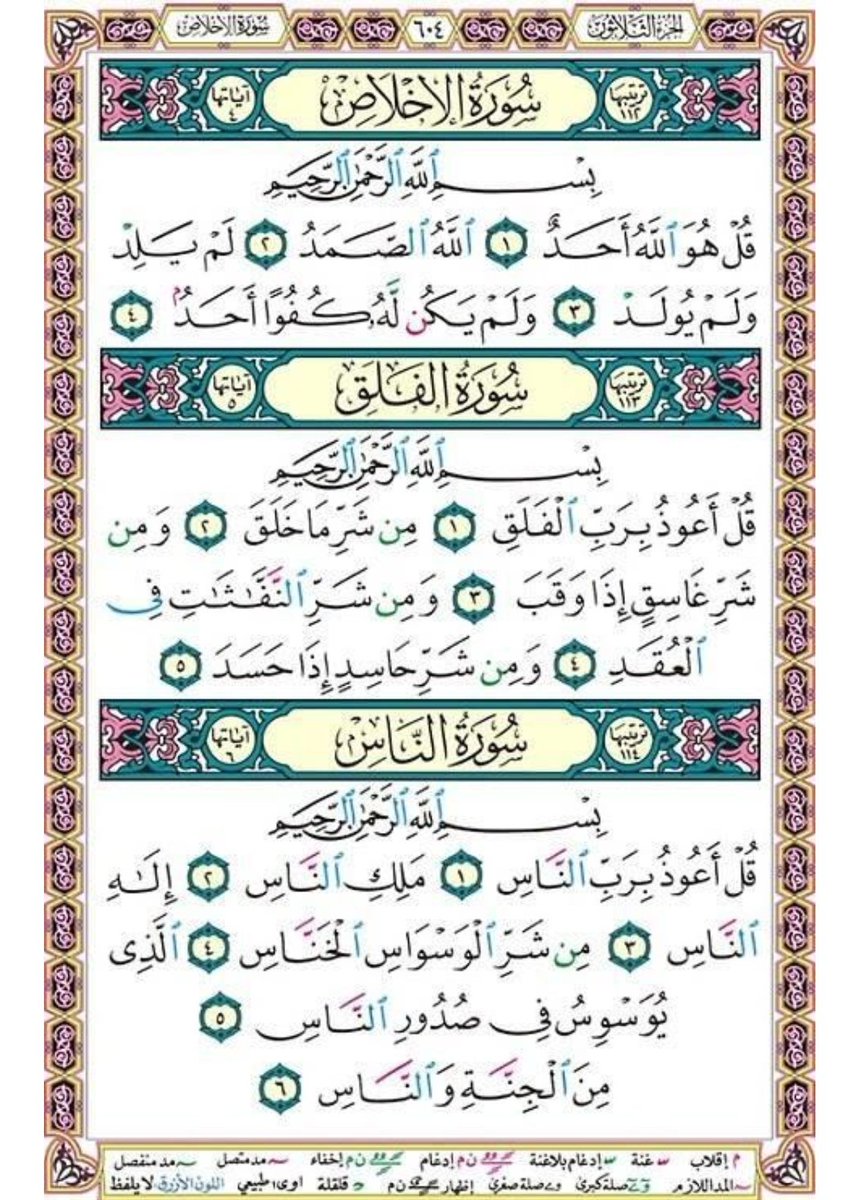 الجزء الثلاثون ٦٠٤ سورة الإخلاص
ترتيبها ١١٢ سُورَةُ الإِخْلَاصِ آياتها ٤
بِسْمِ ٱللَّهِ ٱلرَّحْمَٰنِ ٱلرَّحِيمِ
قُلْ هُوَ ٱللَّهُ أَحَدٌ ١ ٱللَّهُ ٱلصَّمَدُ ٢ لَمْ يَلِدْ
وَلَمْ يُولَدْ ٣ وَلَمْ يَكُن لَّهُۥ كُفُوًا أَحَدُۢ ٤
ترتيبها ١١٣ سُورَةُ الفَلَقِ آياتها ٥
بِسْمِ ٱللَّهِ ٱلرَّحْمَٰنِ ٱلرَّحِيمِ
قُلْ أَعُوذُ بِرَبِّ ٱلْفَلَقِ ١ مِن شَرِّ مَا خَلَقَ ٢ وَمِن
شَرِّ غَاسِقٍ إِذَا وَقَبَ ٣ وَمِن شَرِّ ٱلنَّفَّٰثَٰتِ فِى
ٱلْعُقَدِ ٤ وَمِن شَرِّ حَاسِدٍ إِذَا حَسَدَ ٥
ترتيبها ١١٤ سُورَةُ النَّاسِ آياتها ٦
بِسْمِ ٱللَّهِ ٱلرَّحْمَٰنِ ٱلرَّحِيمِ
قُلْ أَعُوذُ بِرَبِّ ٱلنَّاسِ ١ مَلِكِ ٱلنَّاسِ ٢ إِلَٰهِ
ٱلنَّاسِ ٣ مِن شَرِّ ٱلْوَسْوَاسِ ٱلْخَنَّاسِ ٤ ٱلَّذِى
يُوَسْوِسُ فِى صُدُورِ ٱلنَّاسِ ٥
مِنَ ٱلْجِنَّةِ وَٱلنَّاسِ ٦
م إقلاب غنة إدغام بلاغنة ن م إدغام ن م إخفاء مد متصل مد منفصل
المد اللازم صلة كبرى صلة صغرى إظهار ن م قلقلة اوى طبيعي اللون الأزرق لا يلفظ